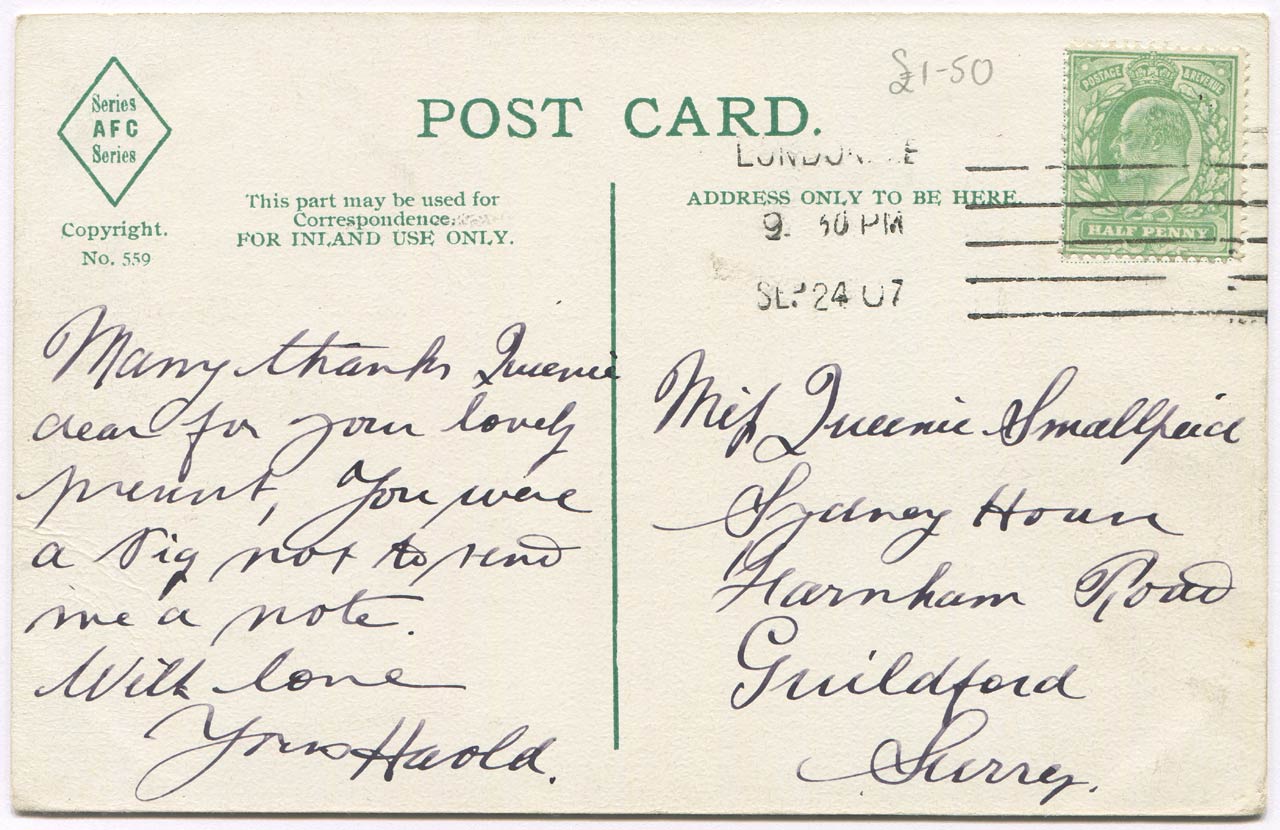 Series
AFC
Series
Copyright.
No. 559
POST CARD.
£1-50
POSTAGE & REVENUE
HALF PENNY
This part may be used for
Correspondence.
FOR INLAND USE ONLY.
ADDRESS ONLY TO BE HERE.
9. 30 PM
SEP 24 07
Many thanks Queenie
dear for your lovely
present, You were
a Pig not to send
me a note.
With love
Yours Harold.
Miss Queenie Smallpeice
Sydney House
Farnham Road
Guildford
Surrey.